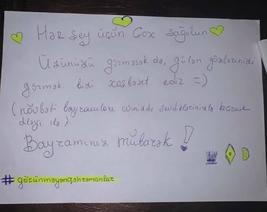 Hər şey üçün Çox sağolun
Üzünüzü görməsək də, gülən gözlərinizi
görmək bizi xoşbəxt edir =)
(növbəti bayramları
diləyi ilə)
Bayramınız mübarək!
#görünməyənqəhrəmanlar